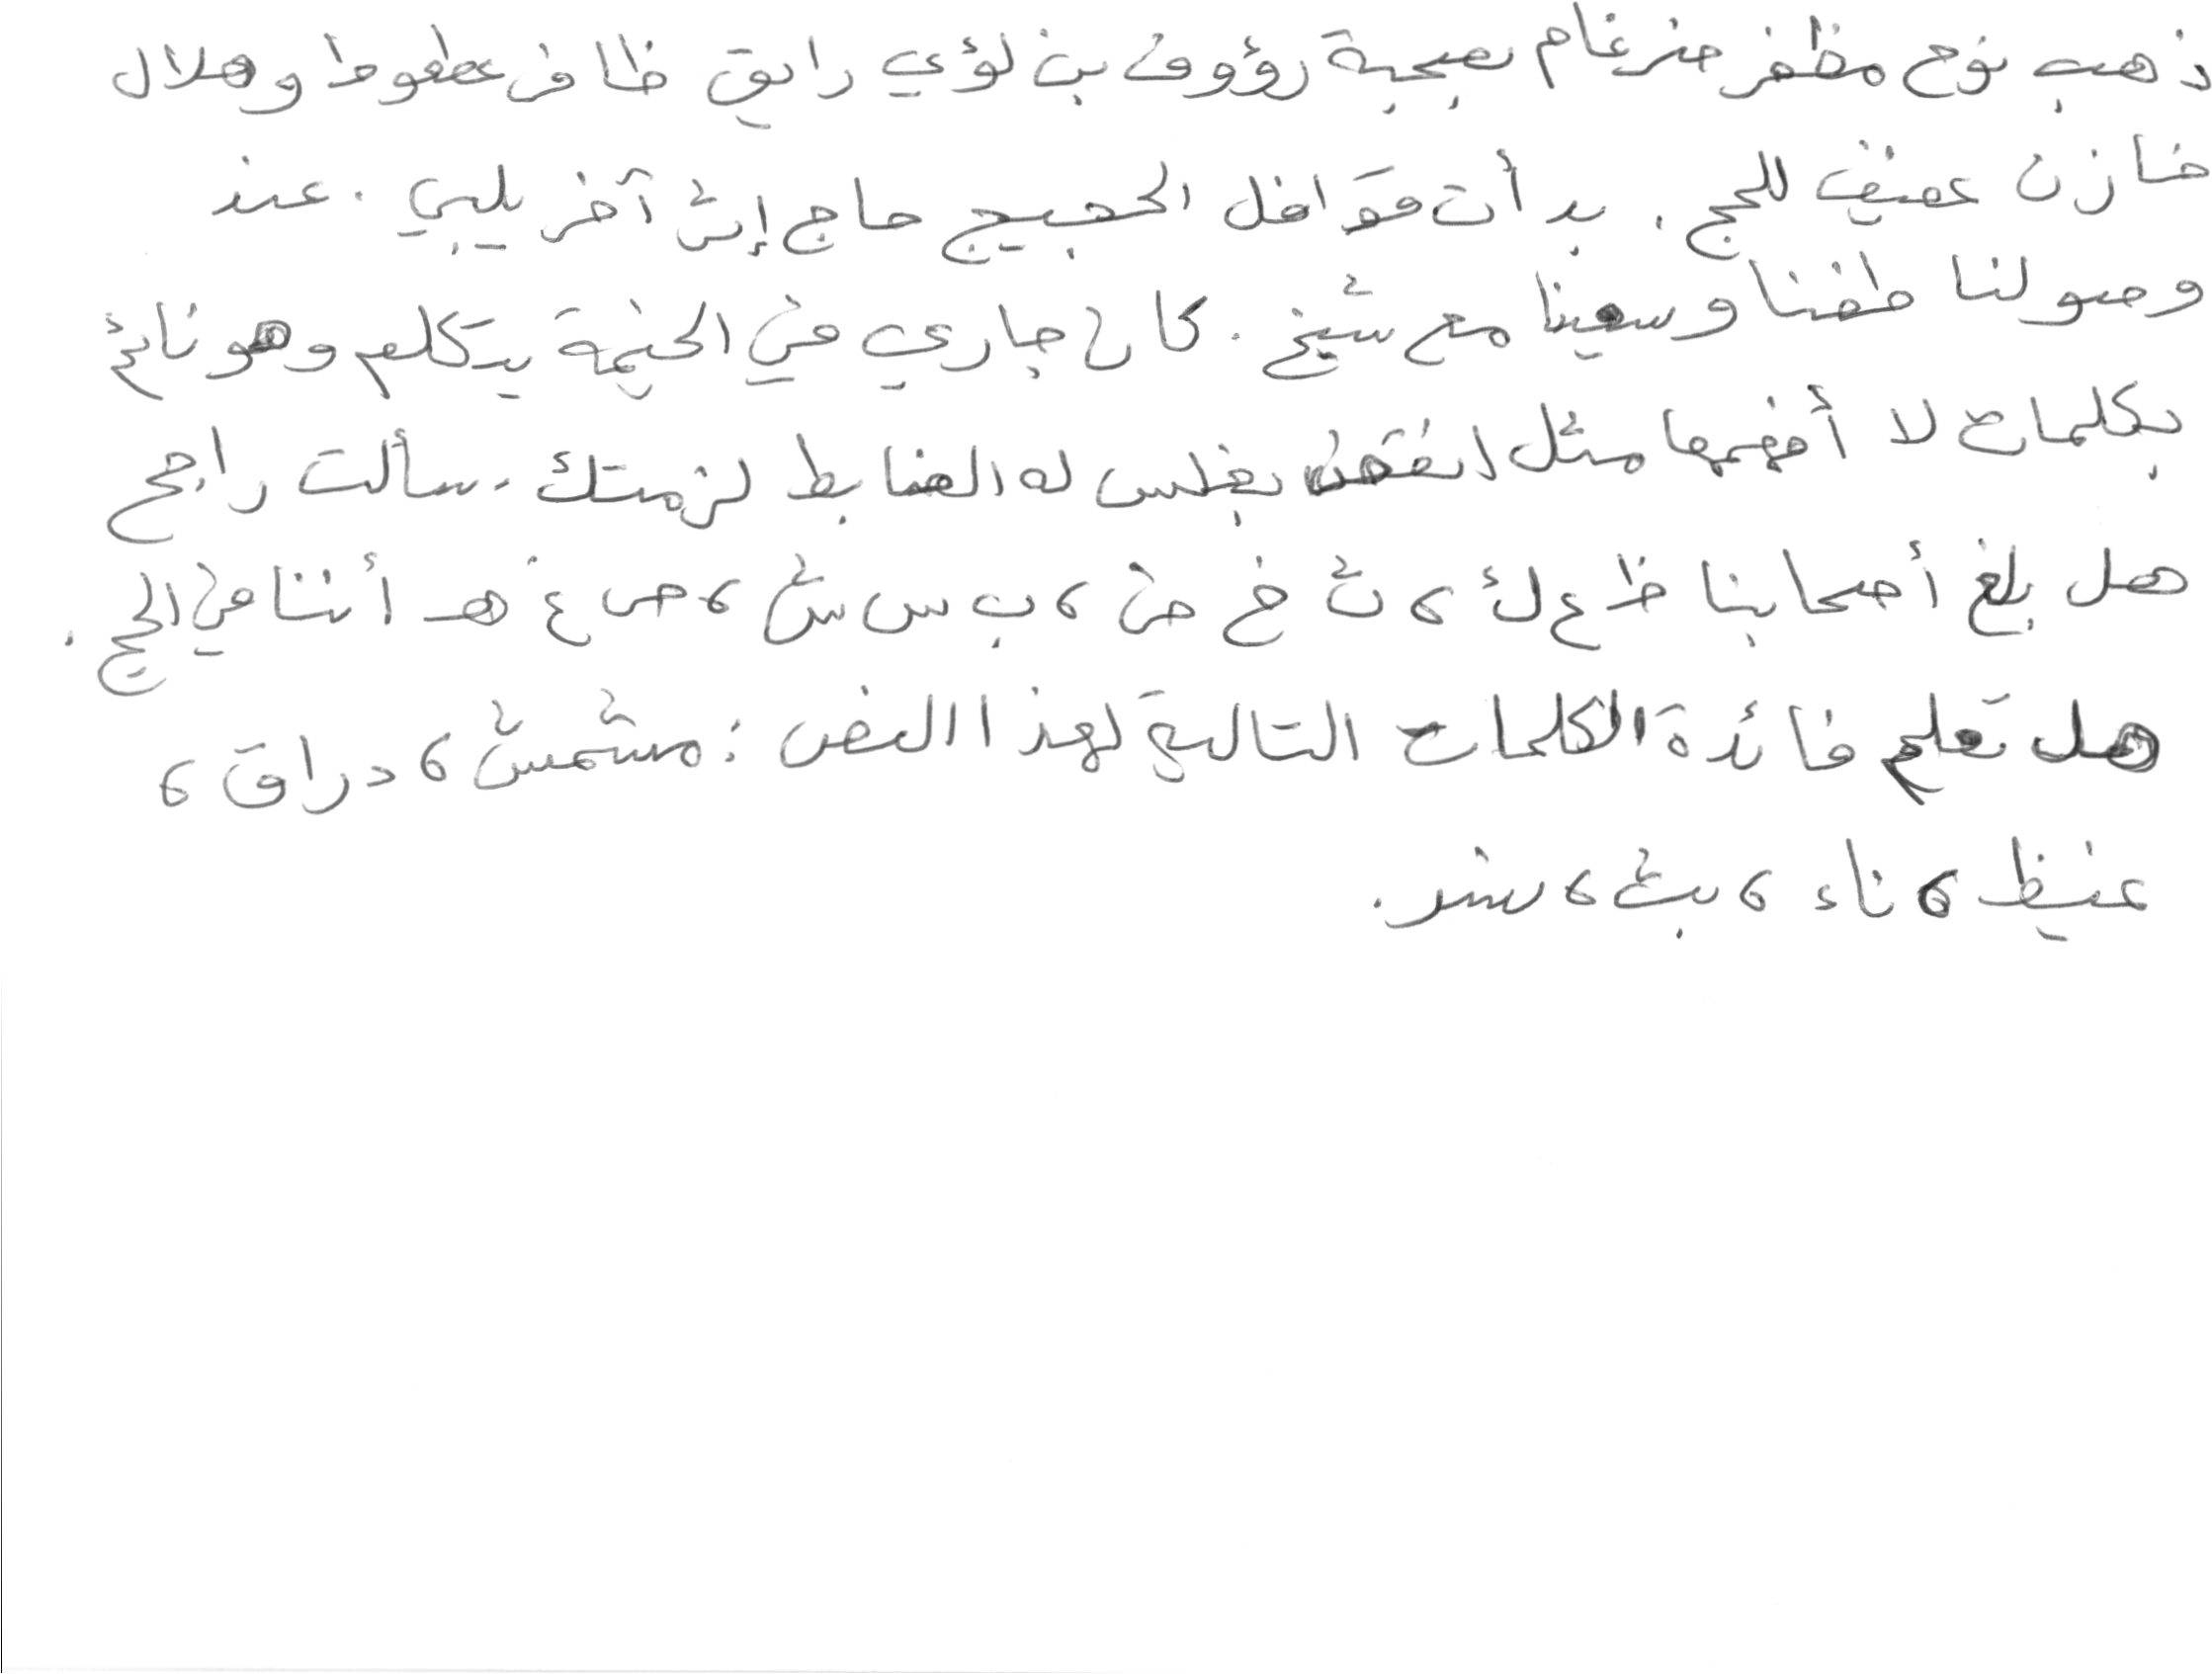 ذهب نوح مظفر ضرغام بصحبة رؤوف بن لؤي رايق ظافر عطوط وهلال
خازن عفيف للحج . بدأت قوافل الحجيج حاج إثر آخر يلبي . عند
وصولنا طفنا وسعينا مع شيخ . كان جاري في الخيمة يتكلم وهو نائم
بكلمات لا أفهمها مثل انفقط بغلس له الضابط لزمتك . سألت راجح
هل بلغ أصحابنا ظ ع ك ، ث خ ض ، ب س ش ، ص غ هـ أننا في الحج .
هل تعلم فائدة الكلمات التالية لهذا النص : مشمش ، دراق ،
غيظ ، ناء ، بث ، سند .